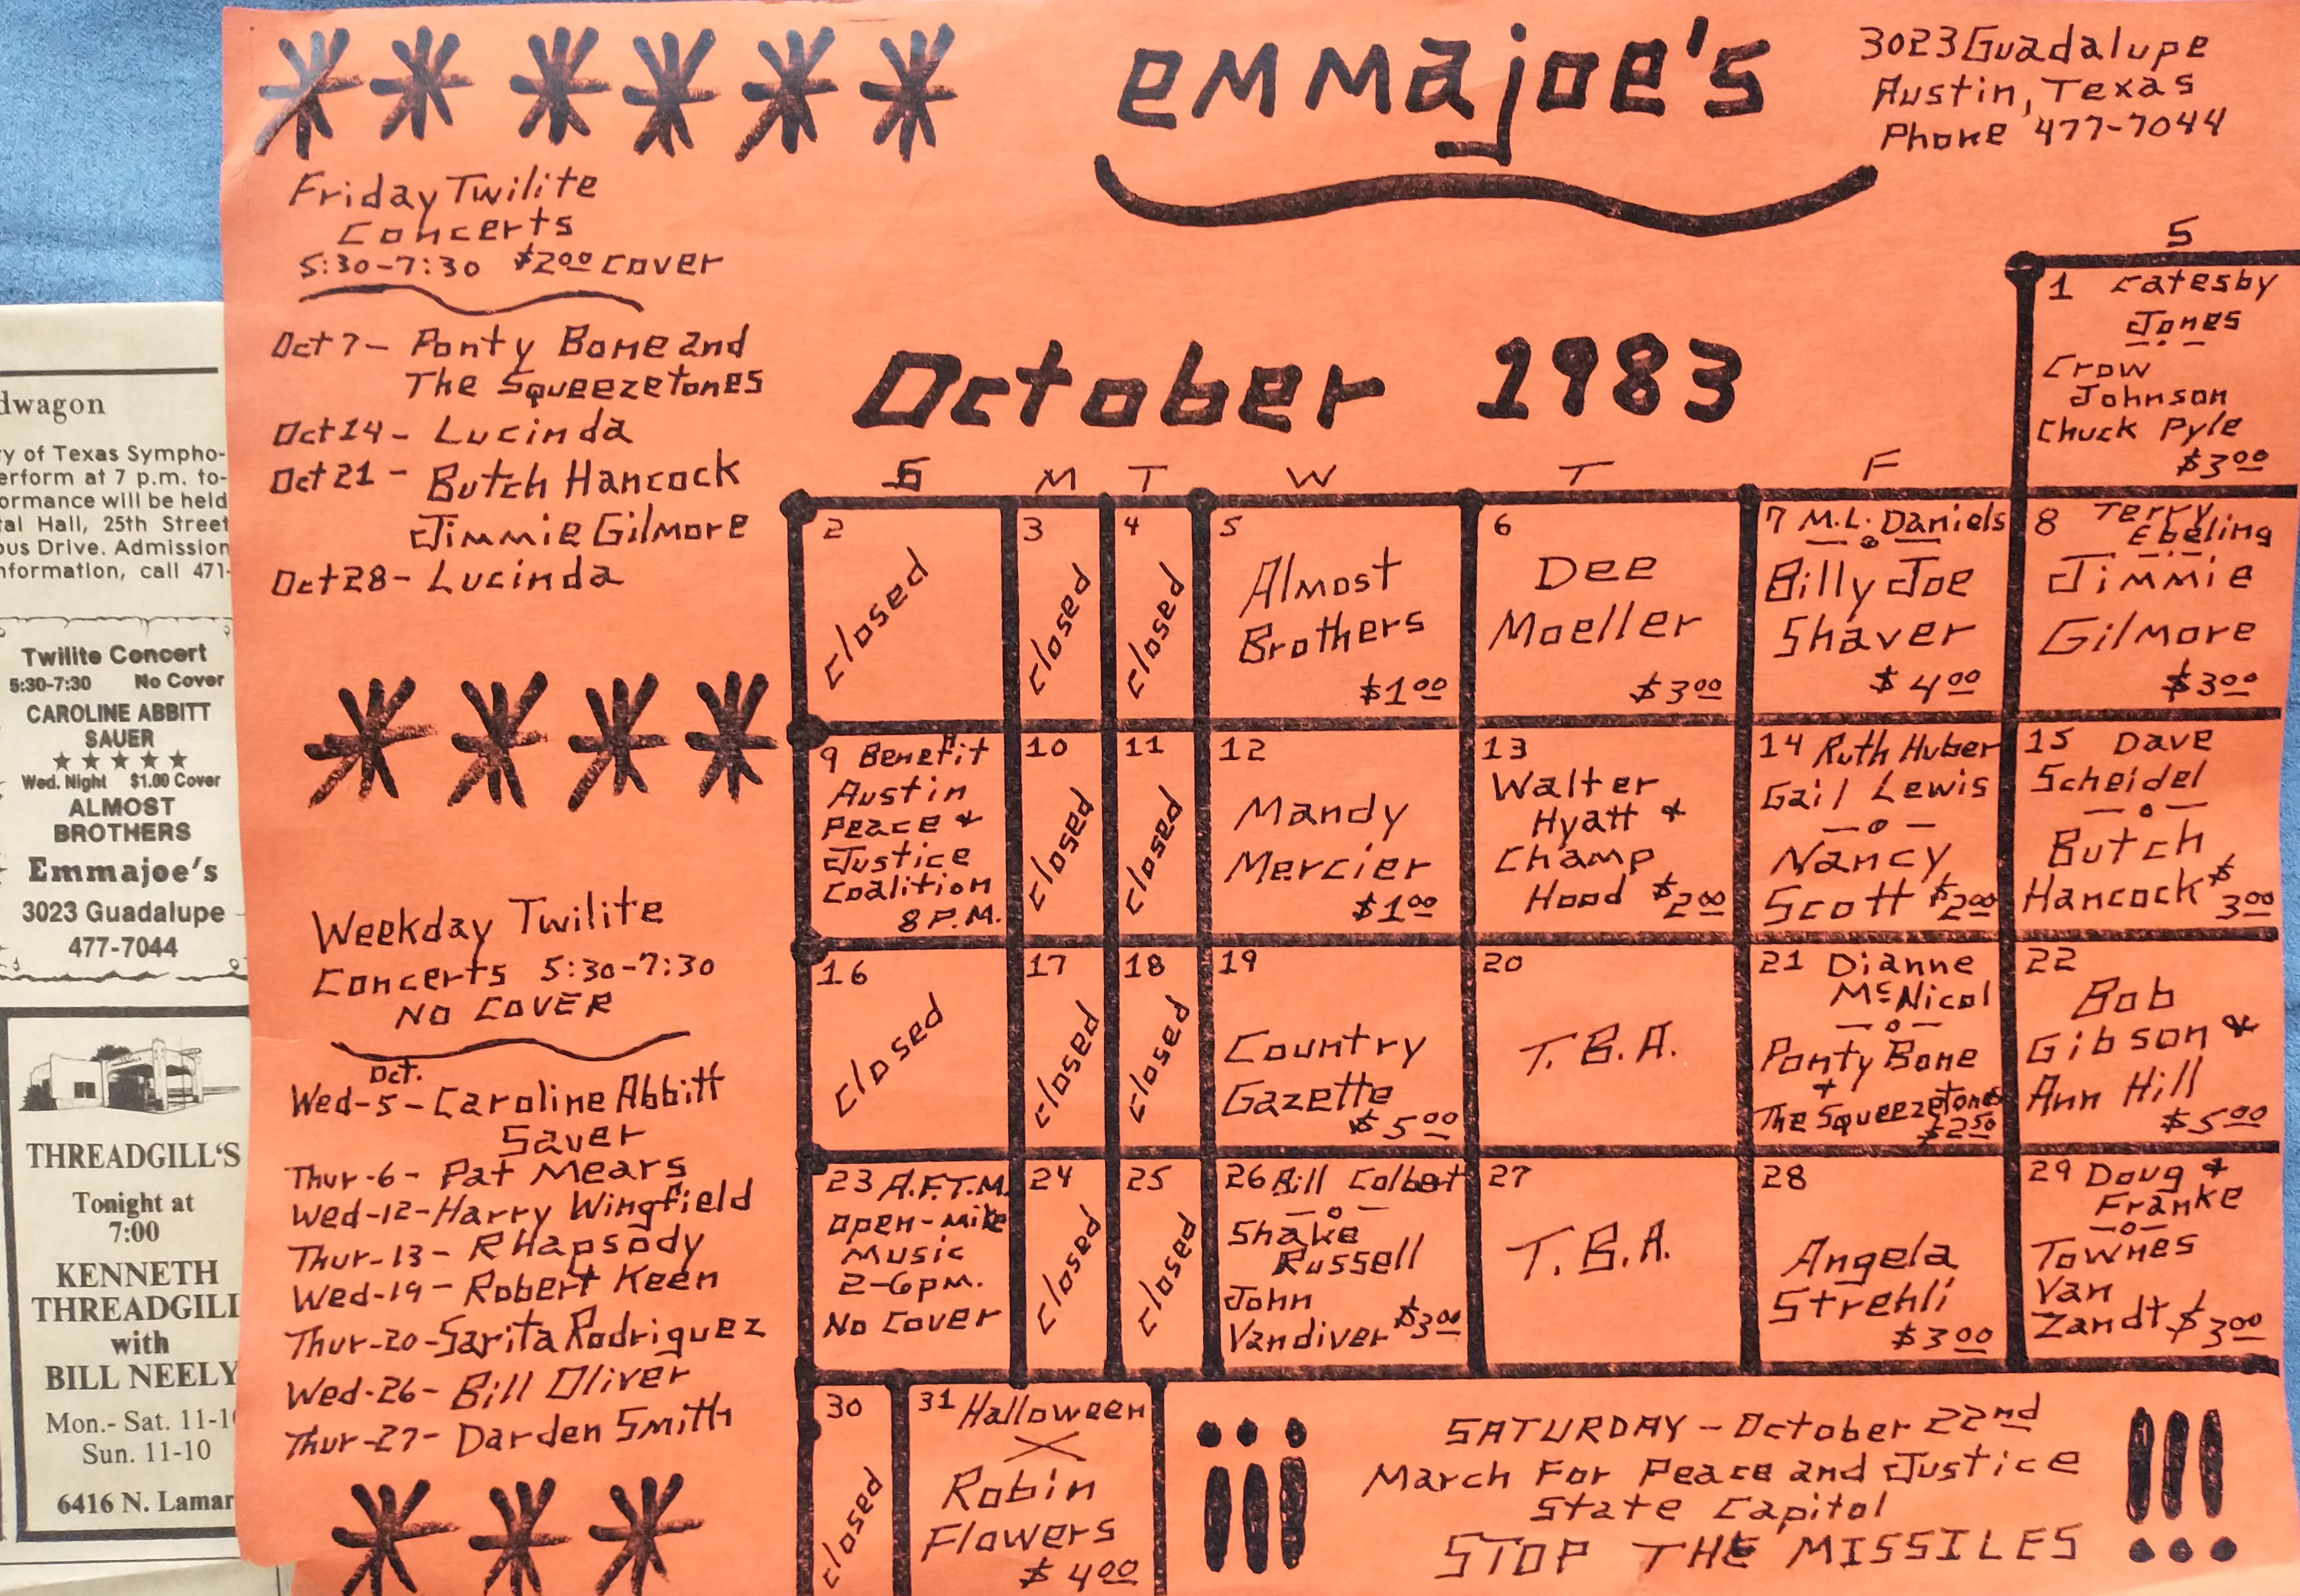 emmajoe's
3023 Guadalupe
Austin, Texas
Phone 477-7044
Friday Twilite
Concerts
5:30-7:30 $2.00 cover
Oct 7- Ponty Bone and
The Squeezetones
Oct 14- Lucinda
Oct 21- Butch Hancock
Jimmie Gilmore
Oct 28- Lucinda
Weekday Twilite
Concerts 5:30-7:30
NO COVER
Oct.
Wed-5-Caroline Abbitt
Sauer
Thur-6- Pat Mears
Wed-12-Harry Wingfield
Thur-13- RHapsody
Wed-19- Robert Keen
Thur-20-Sarita Rodriguez
Wed-26- Bill Oliver
Thur-27- Darden Smith
October 1983
S M T W T F S
1 Catesby
Jones
Crow
Johnson
Chuck Pyle
$3.00
2
closed
3
closed
4
closed
5
Almost
Brothers
$1.00
6
Dee
Moeller
$3.00
7 M.L. Daniels
Billy Joe
Shaver
$4.00
8 Terry
Ebeling
Jimmie
Gilmore
$3.00
9 Benefit
Austin
Peace &
Justice
Coalition
8 P.M.
10
closed
11
closed
12
Mandy
Mercier
$1.00
13
Walter
Hyatt &
Champ
Hood $2.00
14 Ruth Huber
Gail Lewis
Nancy
Scott $2.00
15 Dave
Scheidel
Butch
Hancock $3.00
16
closed
17
closed
18
closed
19
Country
Gazette
$5.00
20
T.B.A.
21 Dianne
McNicol
Ponty Bone
+
The Squeezetones
$2.50
22
Bob
Gibson &
Ann Hill
$5.00
23 A.F.T.M.
open-mike
music
2-6pm.
No Cover
24
closed
25
closed
26 Bill Colbert
Shake
Russell
John
Vandiver $3.00
27
T.B.A.
28
Angela
Strehli
$3.00
29 Doug &
Franke
Townes
Van
Zandt $3.00
30
closed
31 Halloween
Robin
Flowers
$4.00
SATURDAY - October 22nd
March For Peace and Justice
State Capitol
STOP THE MISSILES
!!!
dwagon
ry of Texas Sympho-
erform at 7 p.m. to-
ormance will be held
tal Hall, 25th Street
ous Drive. Admission
nformation, call 471-
Twilite Concert
5:30-7:30 No Cover
CAROLINE ABBITT
SAUER
★★★★★
Wed. Night $1.00 Cover
ALMOST
BROTHERS
Emmajoe's
3023 Guadalupe
477-7044
THREADGILL'S
Tonight at
7:00
KENNETH
THREADGILL
with
BILL NEELY
Mon.- Sat. 11-10
Sun. 11-10
6416 N. Lamar